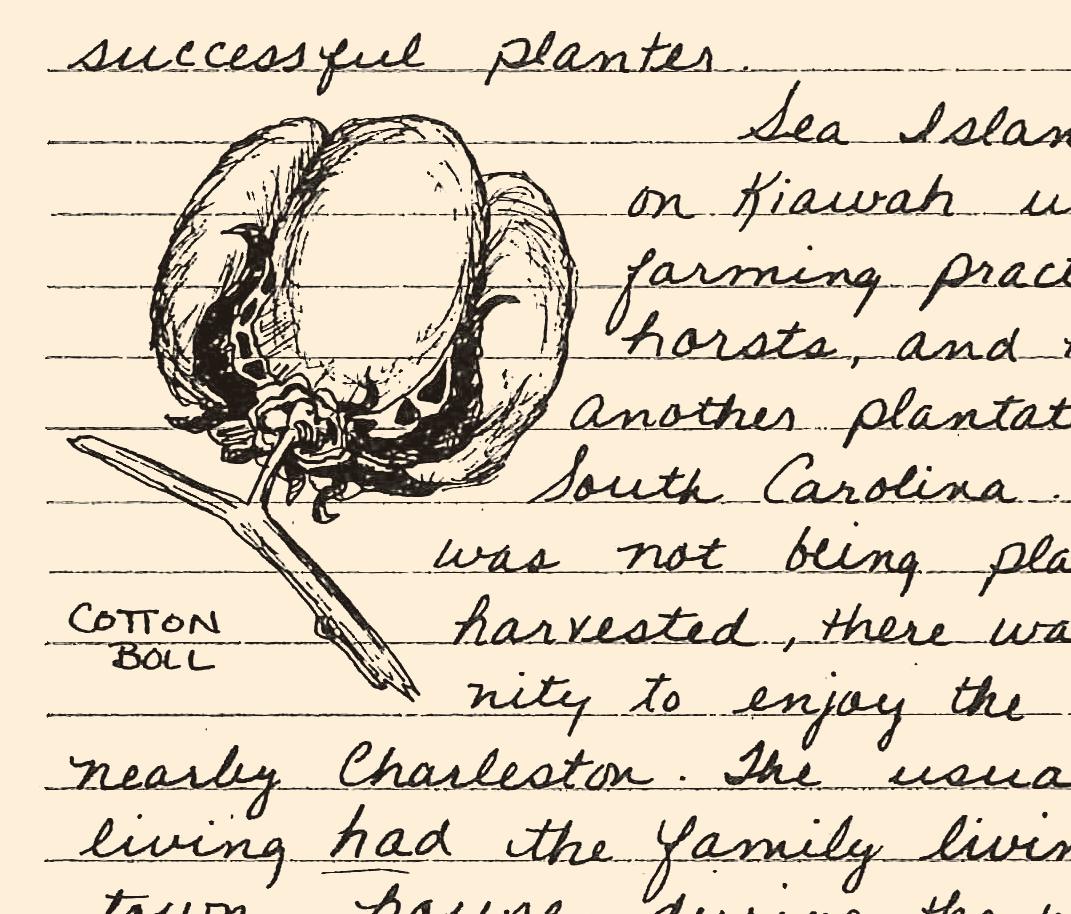 successful planter.
Sea Islan
on Kiawah u
farming pract
horsts, and
another plantat
South Carolina.
was not being pla
COTTON
BOLL
harvested, there wa
nity to enjoy the
nearby Charleston. The usua
living had the family livin
town house during the